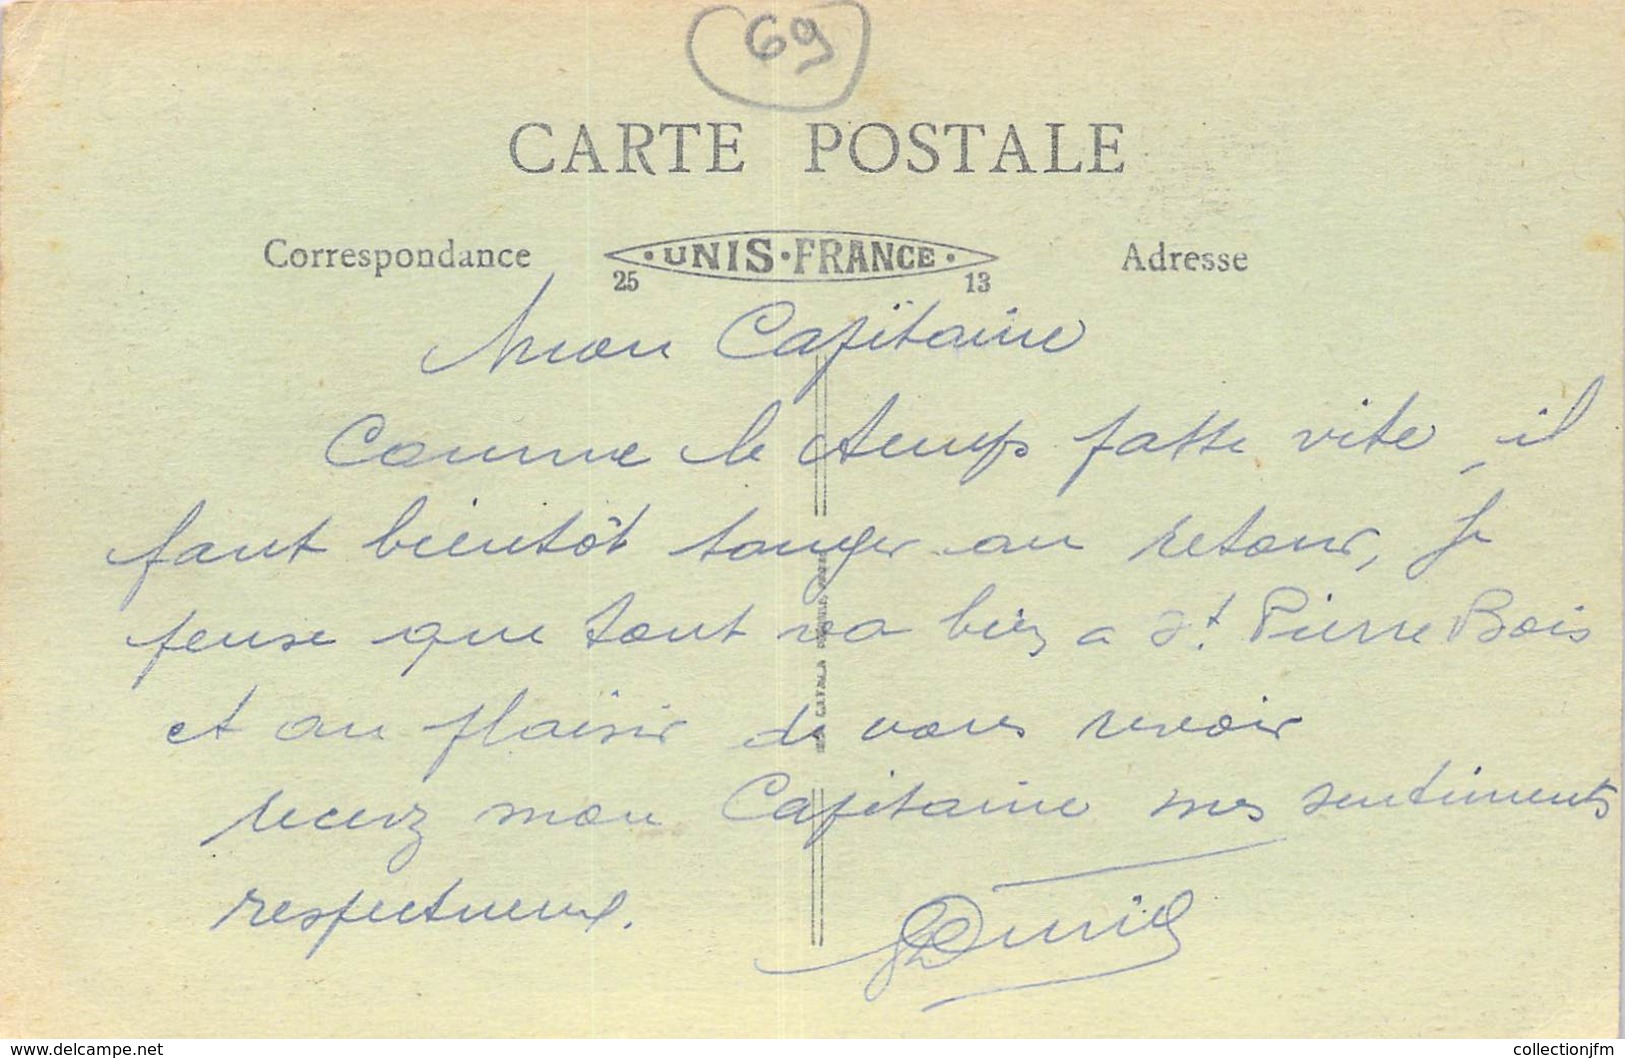 69
CARTE POSTALE
Correspondance
·UNIS·FRANCE·
25 13
Adresse
Mon Capitaine
Comme le temps passe vite, il
faut bientôt songer au retour, Je
pense que tout va bien a St. Pierre Bois
et au plaisir de vous revoir
recevez mon Capitaine mes sentiments
respectueux.
www.delcampe.net
collectionjfm